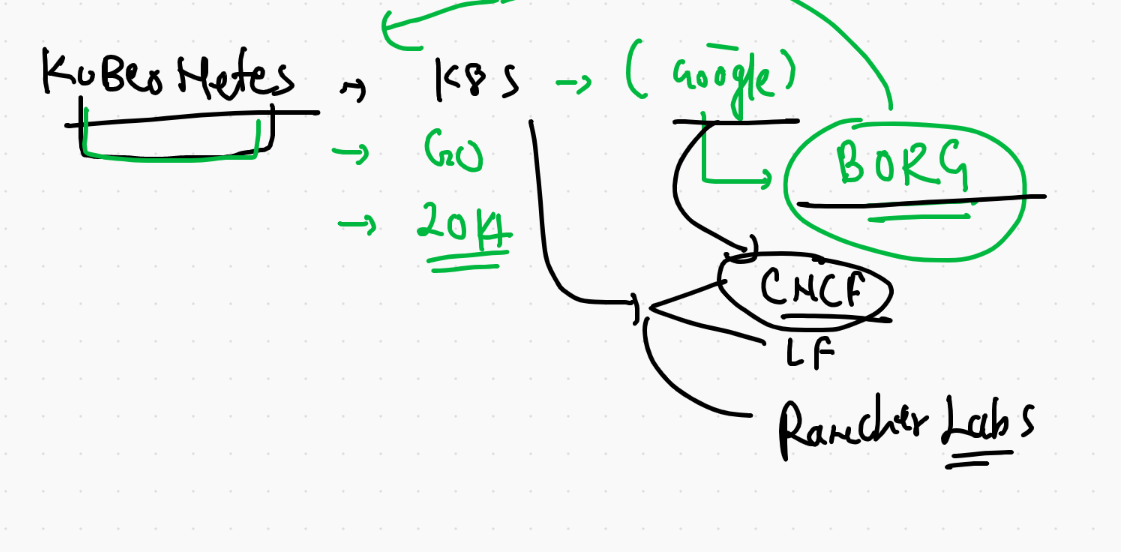 KuBeoNetes → K8S → (Google)
→ GO
BORG
→ 2014
CNCF
LF
Rancher Labs